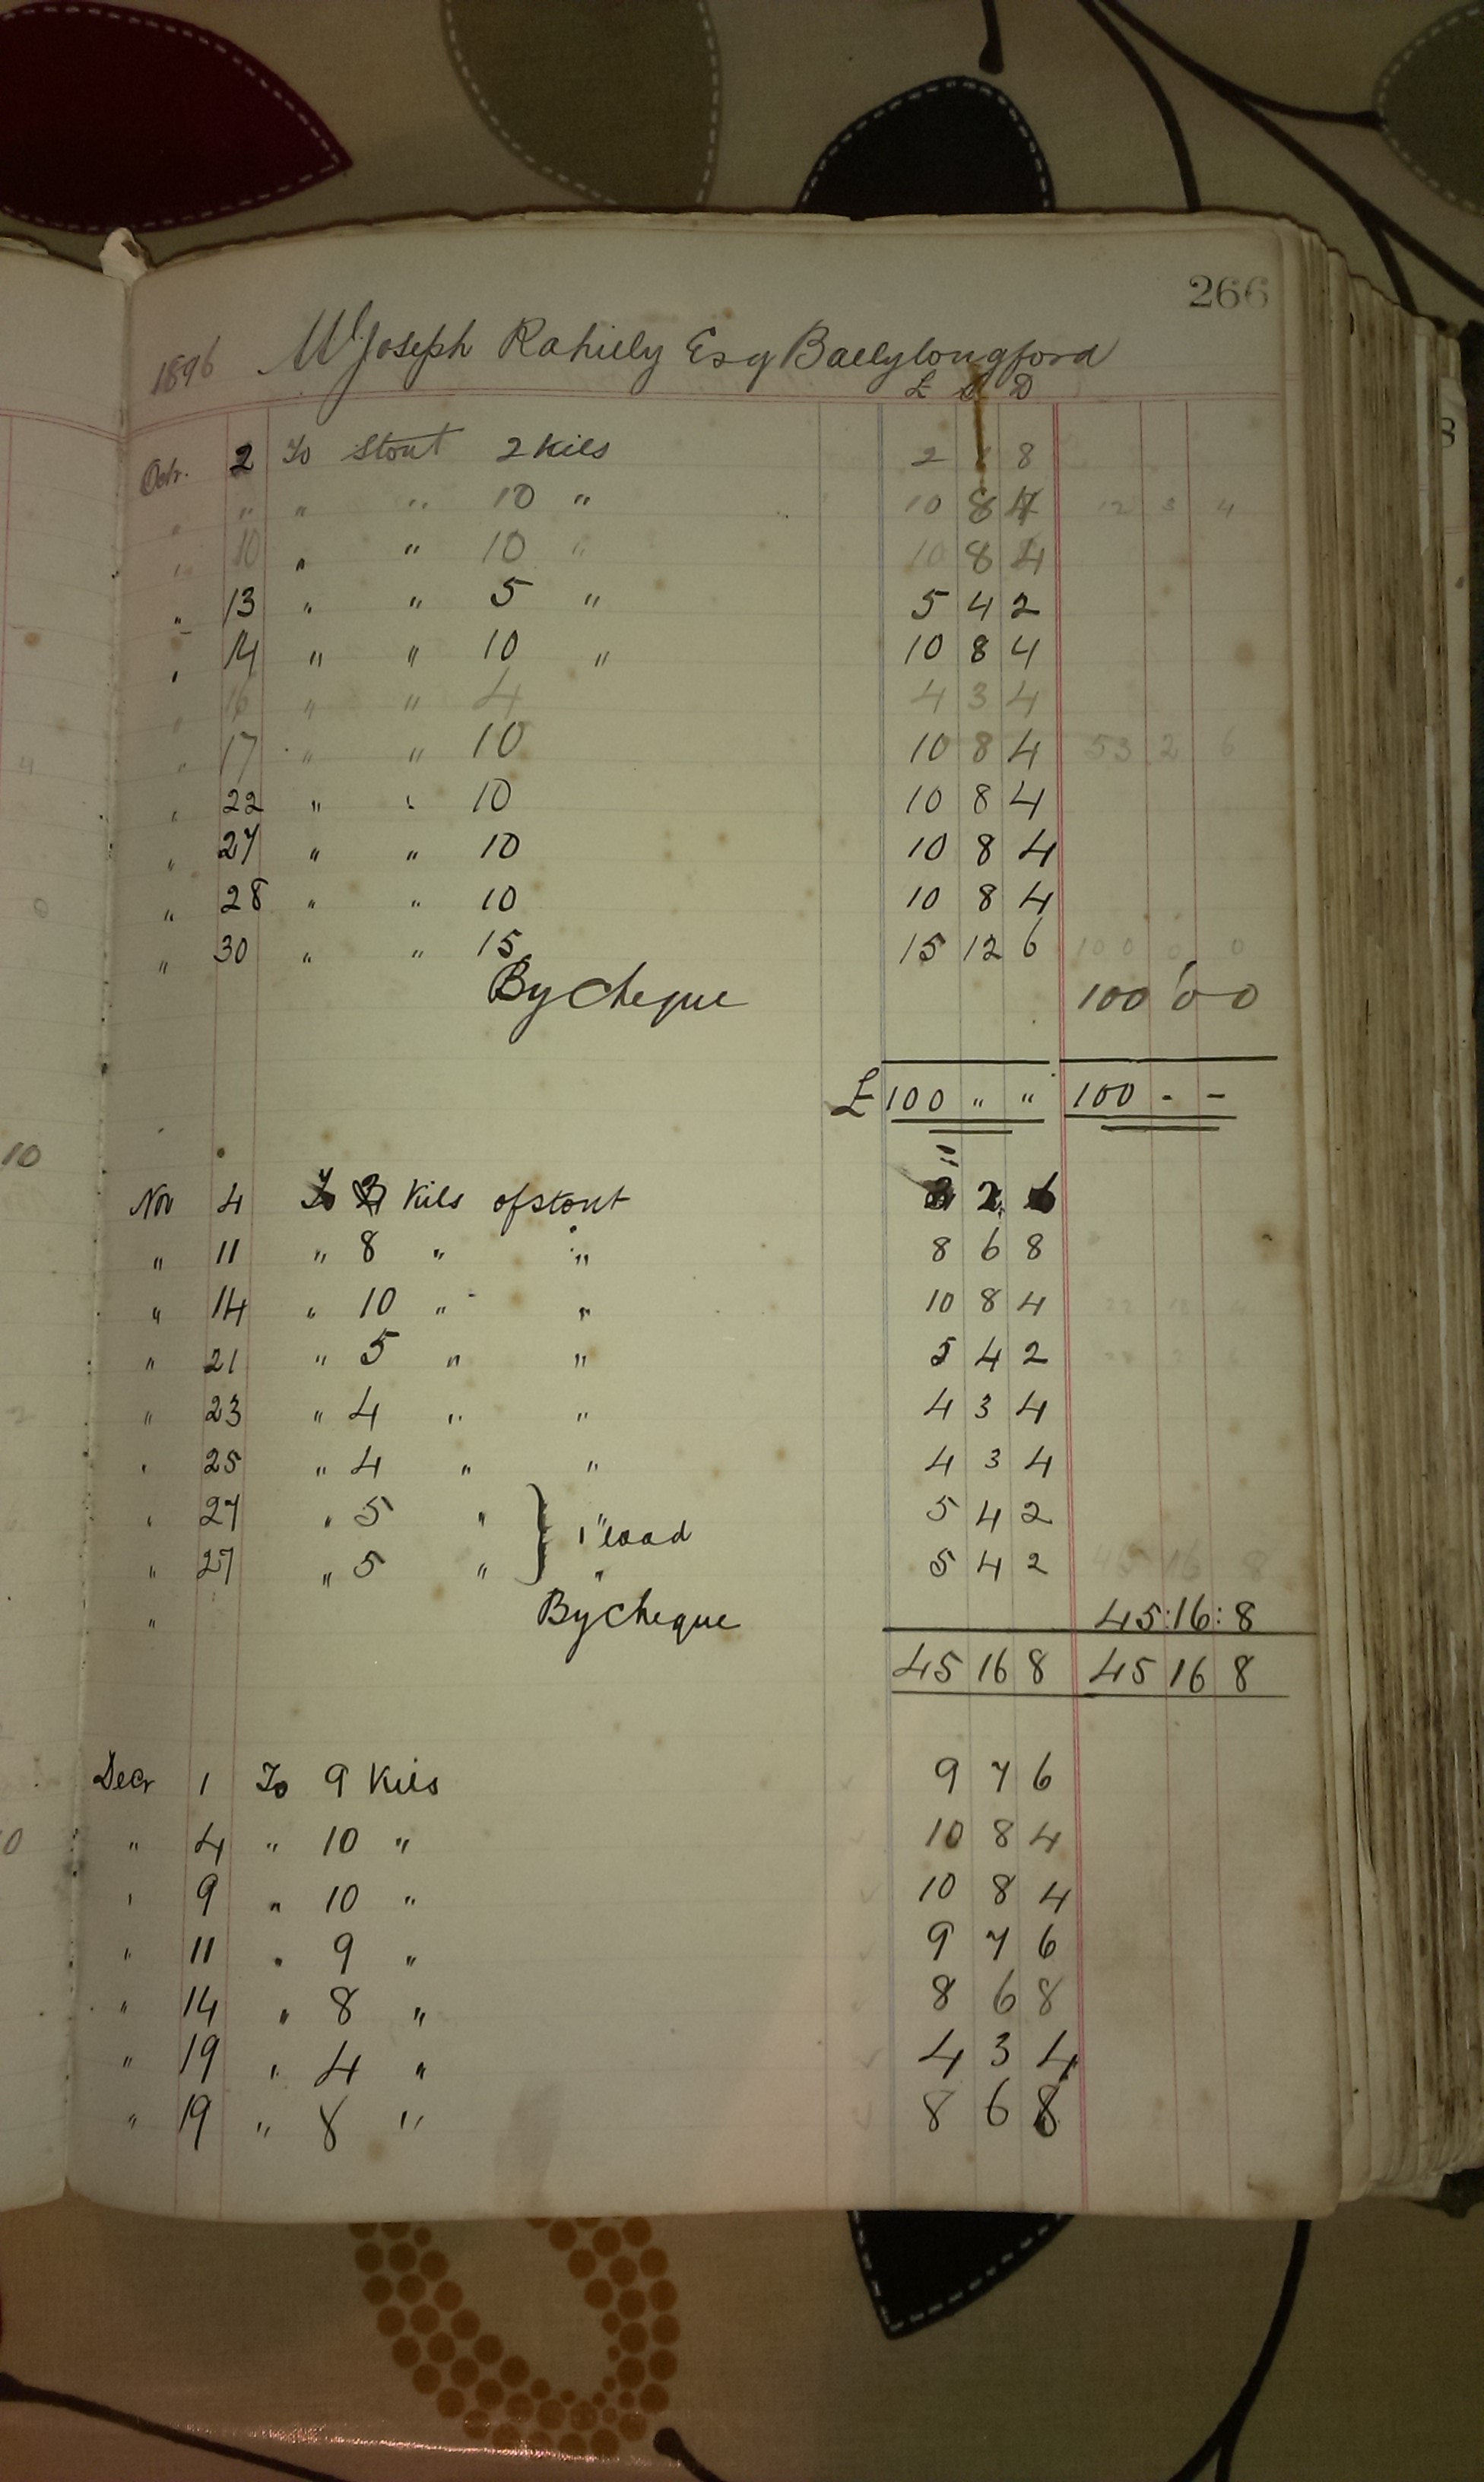 266
1896 Mr Joseph Rahiely Esq Ballylongford
£ S D
Octr. 2 To Stout 2 Kils 2 1 8
" " " " 10 " 10 8 4 12 3 4
" 10 " " 10 " 10 8 4
" 13 " " 5 " 5 4 2
" 14 " " 10 " 10 8 4
" 16 " " 4 4 3 4
" 17 " " 10 10 8 4 53 2 6
" 22 " " 10 10 8 4
" 27 " " 10 10 8 4
" 28 " " 10 10 8 4
" 30 " " 15 15 12 6 100 0 0
By Cheque 100 0 0
£ 100 " " 100 - -
Nov 4 To Kils of stout 2 6
" 11 " 8 " " 8 6 8
" 14 " 10 " " 10 8 4
" 21 " 5 " " 5 4 2
" 23 " 4 " " 4 3 4
" 25 " 4 " " 4 3 4
" 27 " 5 " " 5 4 2
1 load
" 27 " 5 " " 5 4 2 45 16 8
" By Cheque 45:16:8
45 16 8 45 16 8
Decr 1 To 9 Kils 9 7 6
" 4 " 10 " 10 8 4
" 9 " 10 " 10 8 4
" 11 " 9 " 9 7 6
" 14 " 8 " 8 6 8
" 19 " 4 " 4 3 4
" 19 " 8 " 8 6 8